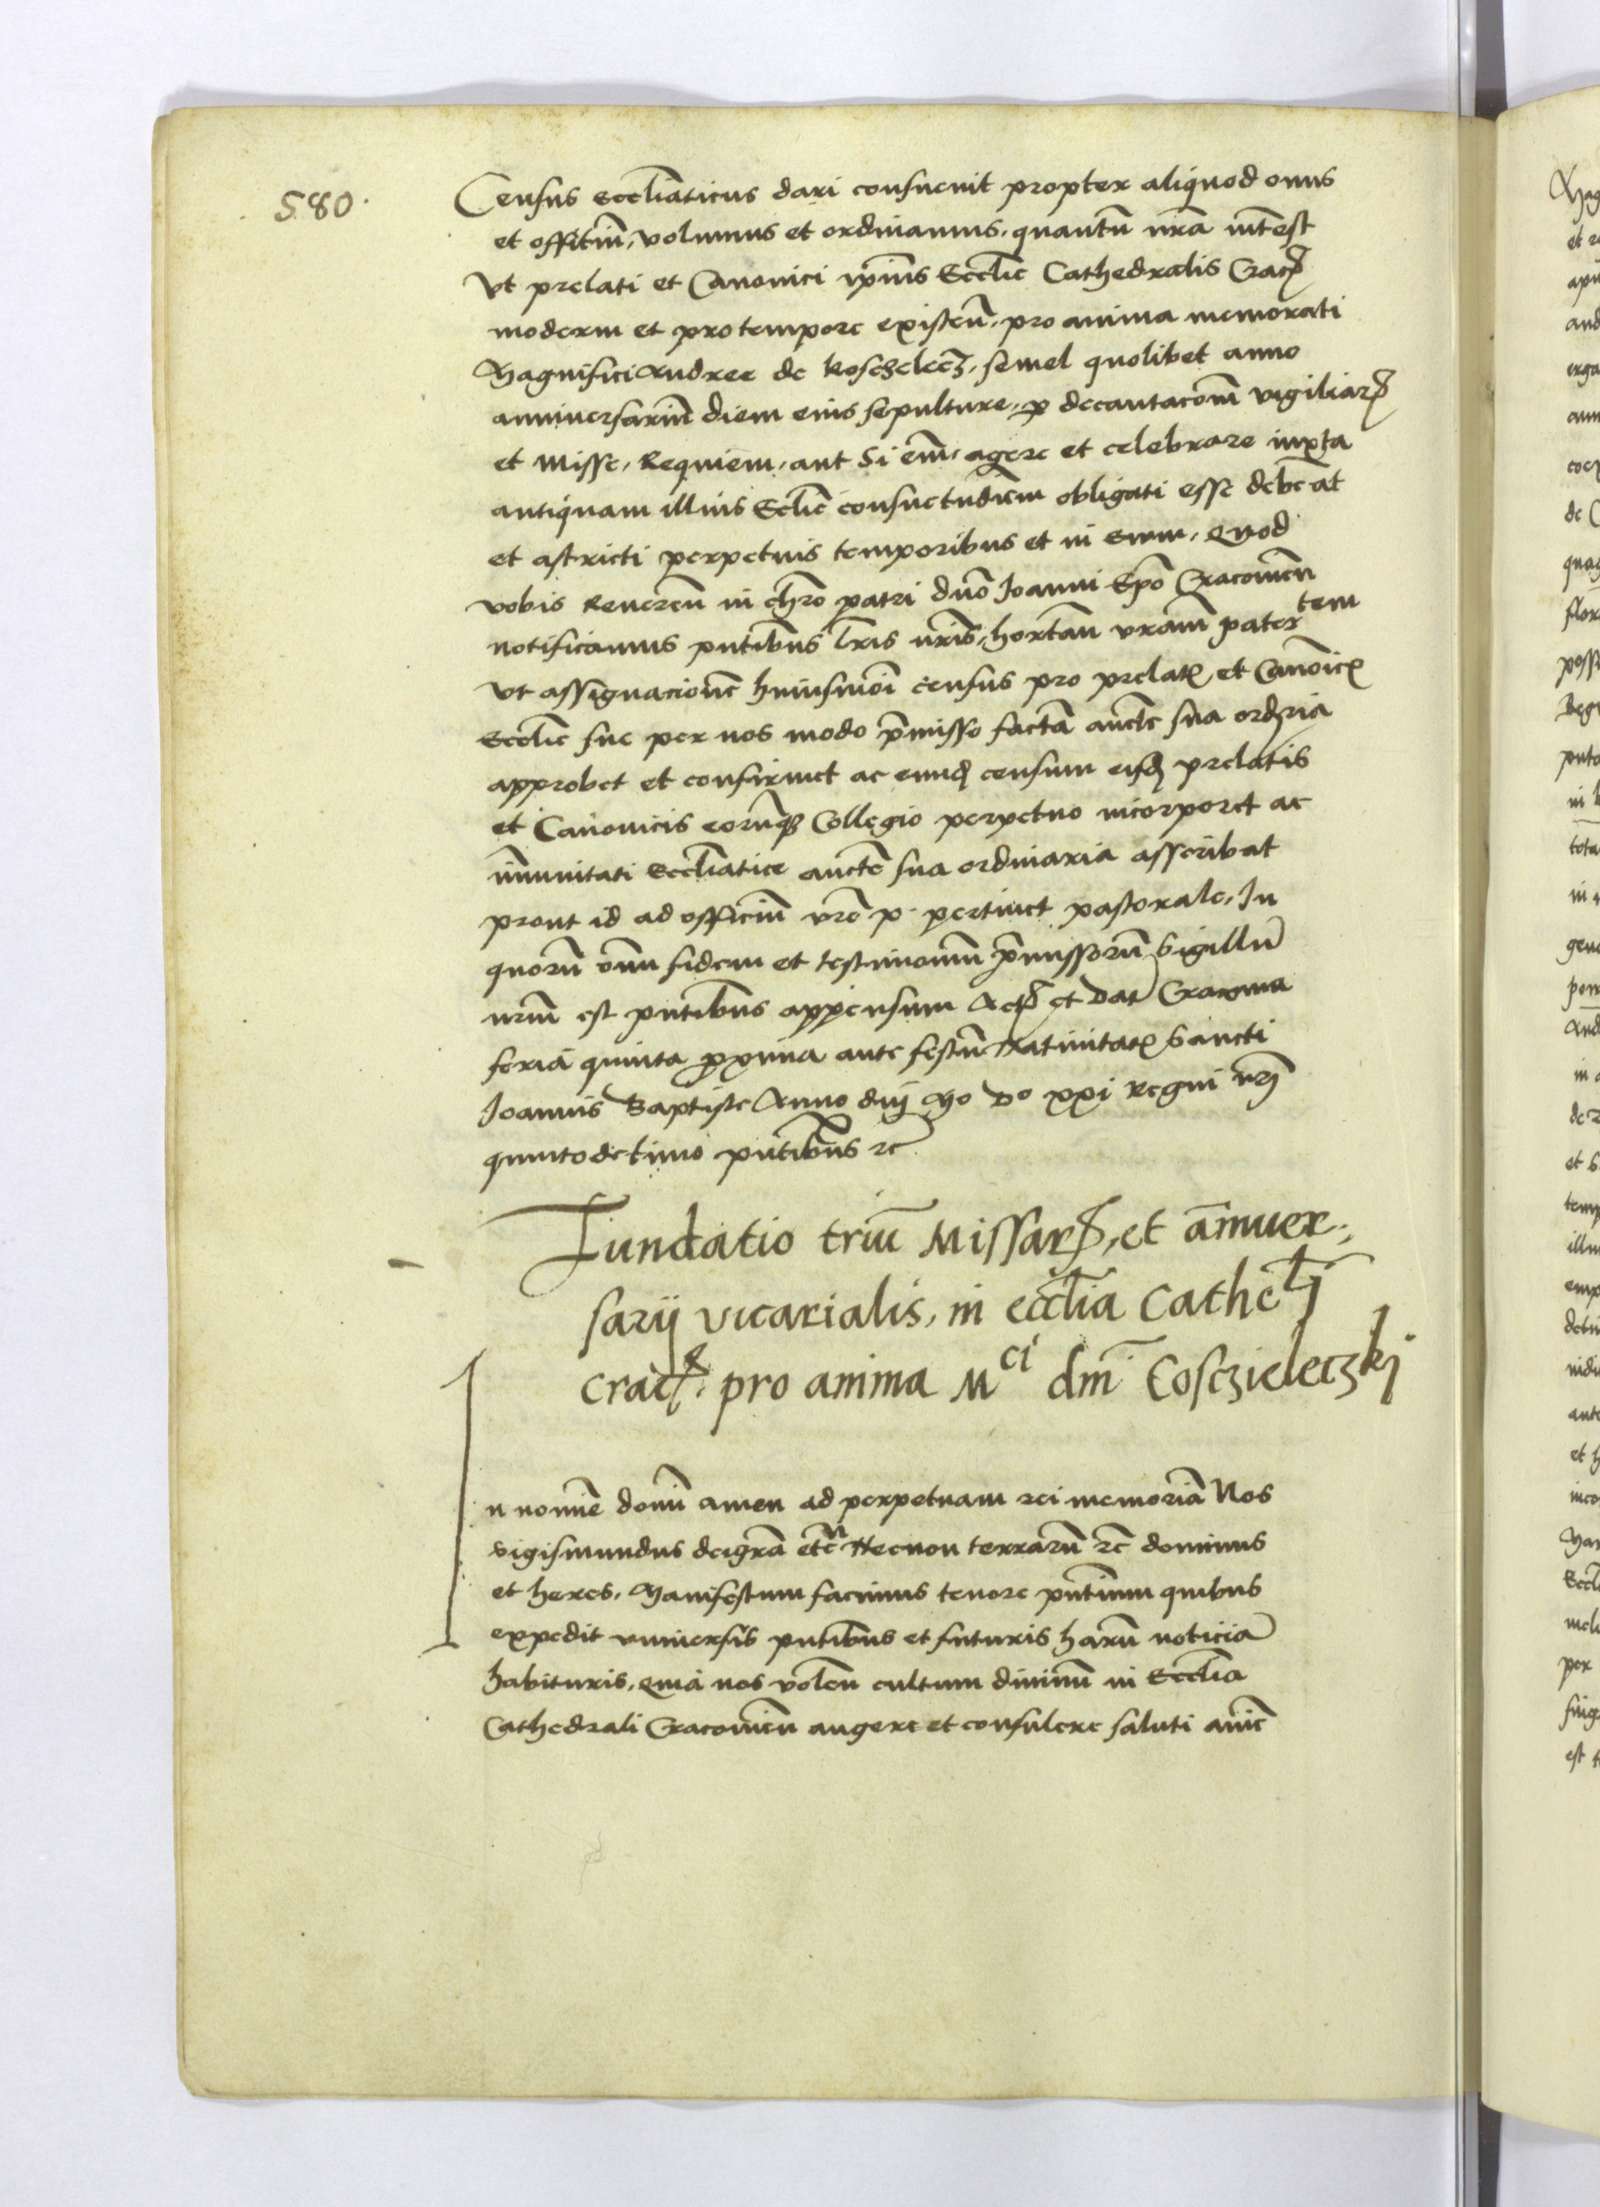 580.
Census eccl̄iaticus dari consuevit propter aliquod onus
et officiū, volumus et ordinamus, quantū nr̄a int̄est
Vt prelati et Canonici ip̄ius Eccl̄ie Cathedralis Crac̄
moderni et pro tempore existen̄, pro anima memorati
Magnifici Andree de Kosczelecz, semel quolibet anno
anniversariū diem eius sepulture, p decantacōm̄ vigiliar̄
et Misse, Requiem, aut Si em̄, agere et celebrare iuxta
antiquam illius Ecl̄ie consuetudiem obligati esse debeāt
et astricti perpetuis temporibus et in evum, Quod
vobis Reveren̄ in chr̄o patri dn̄o Joanni Ep̄o Cracovien̄
notificamus pn̄tibus l̄ris nr̄is, hortan̄ vr̄am pater tem
Vt assignacionē huiusmōi census pro prelat et Canoīc
Eccl̄ie sue per nos modo p̄misso factā auct̄e sua ordria
approbet et confirmet ac eund censum eisd prelatis
et Canonicis eorūq Collegio perpetuo incorporet ac
im̄unitati Eccl̄iatice auct̄e sua ordinaria asscribat
prout id ad officiū vr̄e p. pertinet pastorale, In
quorū om̄n fidem et testimoniū p̄missorū Sigillū
nr̄m est pn̄tibus appensum Act̄ et Dat̄ Cracovia
feria quinta proxima ante festū Nativitat Sancti
Joannis Baptiste Anno dn̄j Mo Do xxi Regni nr̄j
quintodecimo pn̄tibus &c
Fundatio triū Missar̄, et an̄niver,
sarij vicarialis, in eccl̄ia Cathe lj
Crac̄. pro anima M ci dm̄ Cosczieleczkj
In nomīe domī amen ad perpetuam rei memoriā Nos
Sigismundus dei gr̄a etc̄ Necnon terrarū &c dominus
et heres, Manifestum facimus tenore pn̄tium quibus
expedit universis pn̄tibus et futuris harū noticiā
habituris, Quia nos volen̄ cultum divinū in Eccl̄ia
Cathedrali Cracovien̄ augere et consulere saluti anīe